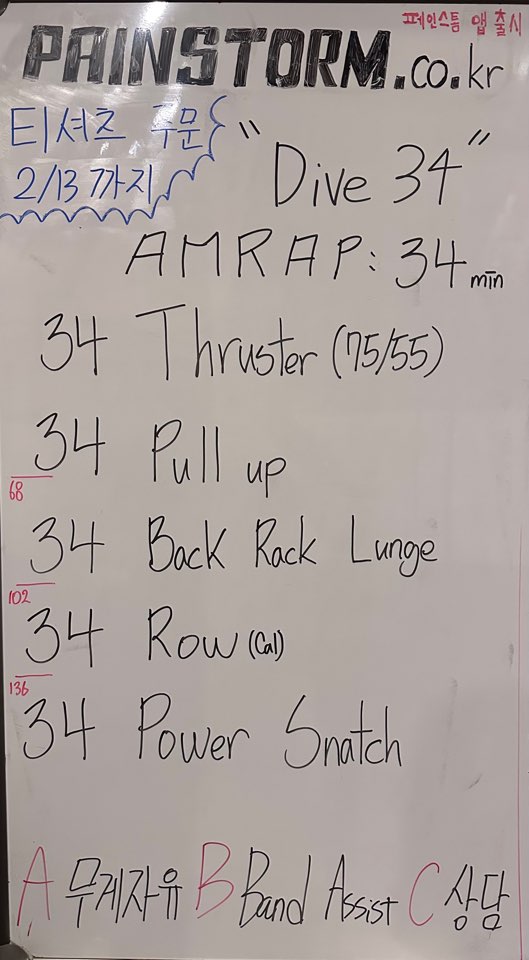 페인스톰 앱 출시
PAINSTORM.co.kr
티셔츠 주문
2/13 까지
"Dive 34"
AMRAP: 34 min
34 Thruster (75/55)
34 Pull up
68
34 Back Rack Lunge
102
34 Row (Cal)
136
34 Power Snatch
A 무게자유 B Band Assist C 상담